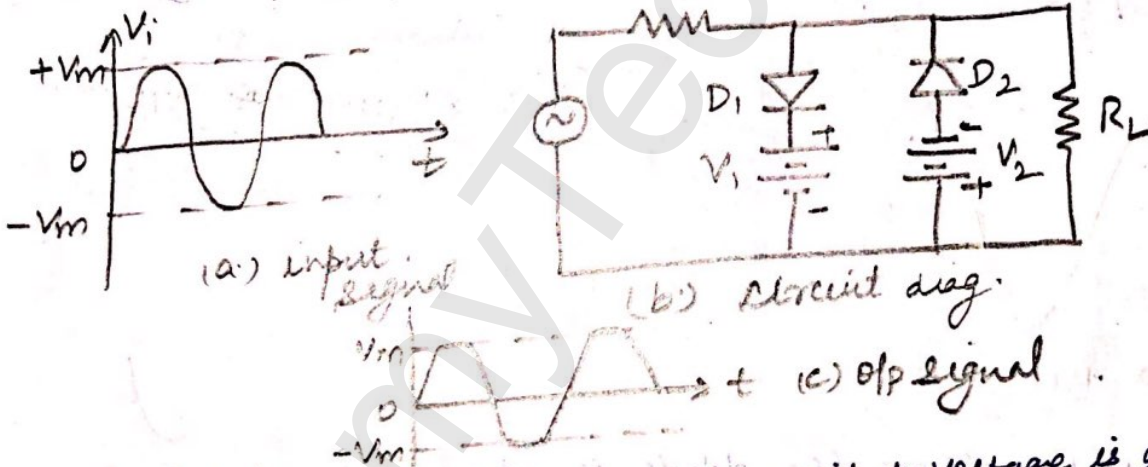 Vi
+Vm
0
-Vm
t
(a.) input signal
D1
V1
+
-
D2
-
V2
+
RL
(b.) Circuit diag.
Vm
0
-Vm
t
(c) O/p signal.
voltage is